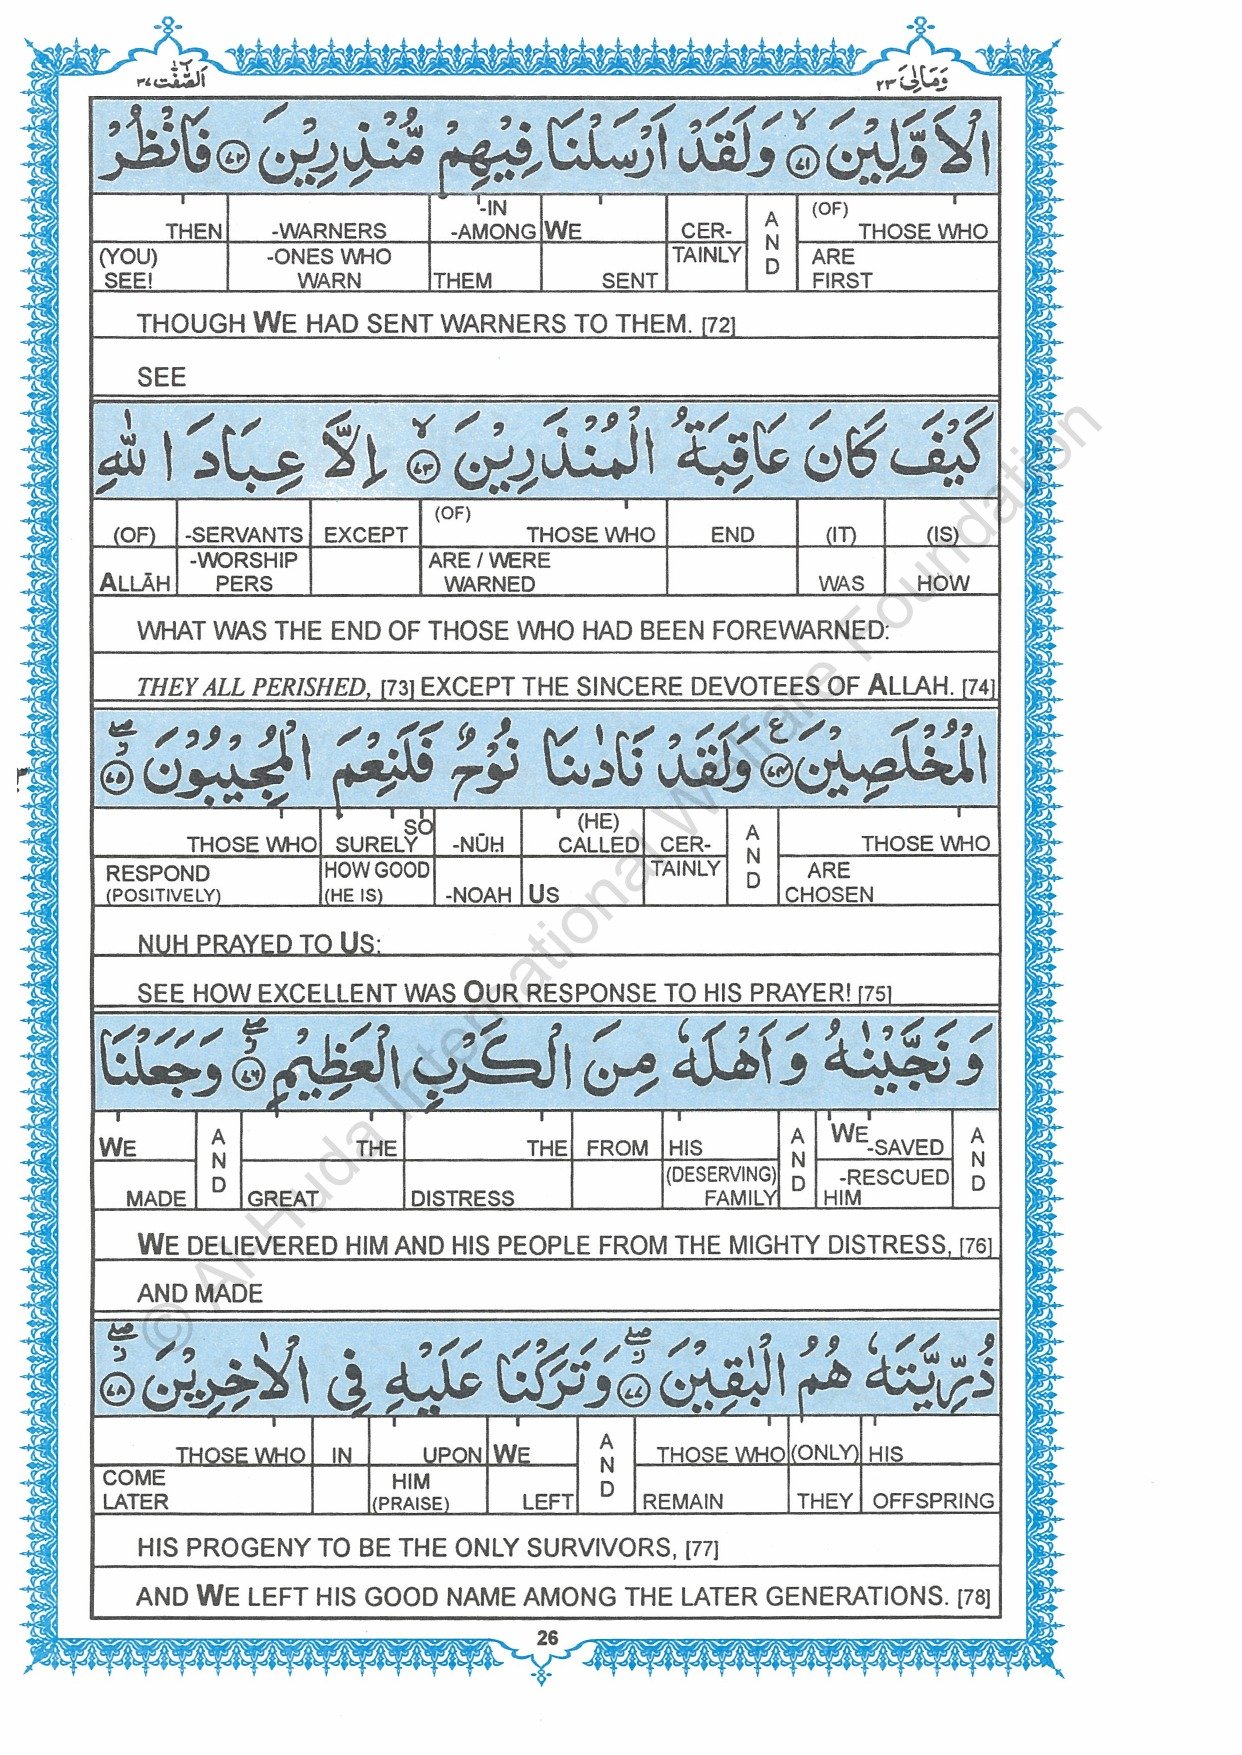 وَمَالِيَ ٢٣
اَلصّٰٓفّٰت ٣٧
الْاَوَّلِيْنَ ﴿٧١﴾ۙ وَلَقَدْ اَرْسَلْنَا فِيْهِمْ مُّنْذِرِيْنَ ﴿٧٢﴾ فَانْظُرْ
THEN -WARNERS -IN -AMONG WE CER- AND (OF) THOSE WHO
(YOU) SEE! -ONES WHO WARN THEM SENT TAINLY ARE FIRST
THOUGH WE HAD SENT WARNERS TO THEM. [72]
SEE
كَيْفَ كَانَ عَاقِبَةُ الْمُنْذَرِيْنَ ﴿٧٣﴾ۙ اِلَّا عِبَادَ اللّٰهِ
(OF) -SERVANTS EXCEPT (OF) THOSE WHO END (IT) (IS)
ALLĀH -WORSHIP PERS ARE / WERE WARNED WAS HOW
WHAT WAS THE END OF THOSE WHO HAD BEEN FOREWARNED:
THEY ALL PERISHED, [73] EXCEPT THE SINCERE DEVOTEES OF ALLAH. [74]
الْمُخْلَصِيْنَ ﴿٧٤﴾ۧ وَلَقَدْ نَادٰىنَا نُوْحٌ فَلَنِعْمَ الْمُجِيْبُوْنَ ﴿٧٥﴾ۖ
THOSE WHO SO SURELY -NŪḤ (HE) CALLED CER- AND THOSE WHO
RESPOND (POSITIVELY) HOW GOOD (HE IS) -NOAH US TAINLY ARE CHOSEN
NUH PRAYED TO US:
SEE HOW EXCELLENT WAS OUR RESPONSE TO HIS PRAYER! [75]
وَنَجَّيْنٰهُ وَاَهْلَهٗ مِنَ الْكَرْبِ الْعَظِيْمِ ﴿٧٦﴾ۖ وَجَعَلْنَا
WE AND THE THE FROM HIS AND WE -SAVED AND
MADE GREAT DISTRESS (DESERVING) FAMILY -RESCUED HIM
WE DELIEVERED HIM AND HIS PEOPLE FROM THE MIGHTY DISTRESS, [76]
AND MADE
ذُرِّيَّتَهٗ هُمُ الْبٰقِيْنَ ﴿٧٧﴾ۖ وَتَرَكْنَا عَلَيْهِ فِى الْاٰخِرِيْنَ ﴿٧٨﴾ۖ
THOSE WHO IN UPON WE AND THOSE WHO (ONLY) HIS
COME LATER HIM (PRAISE) LEFT REMAIN THEY OFFSPRING
HIS PROGENY TO BE THE ONLY SURVIVORS, [77]
AND WE LEFT HIS GOOD NAME AMONG THE LATER GENERATIONS. [78]
26
© Al-Huda International Welfare Foundation